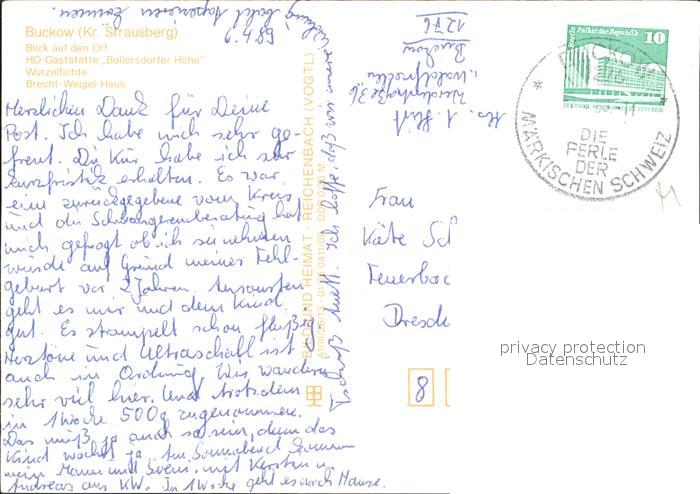 Buckow (Kr. Strausberg)
Blick auf den Ort
HO-Gaststätte „Bollersdorfer Höhe"
Wurzelfichte
Brecht-Weigel-Haus
6.4.89
Herzlichen Dank für Deine
Post. Ich habe mich sehr ge-
freut. Die Kur habe ich sehr
kurzfristig erhalten. Es war
eine zurückgegebene vom Kreis
und die Schwangerenberatung hat
mich gefragt ob ich sie nehmen
würde auf Grund meiner Fehl-
geburt vor 2 Jahren. Ansonsten
geht es mir und dem Kind
gut. Es strampelt schon fleißig
Herztöne und Ultraschall ist
auch in Ordnung. Wir wandern
sehr viel hier. Und trotzdem
in 1 Woche 500g zugenommen.
Das muß ja auch so sein, denn das
Kind wächst ja. Am Sonnabend kommen
mein Mann und Svens. mit Kerstin u.
Andreas aus KW. In 1 Woche geht es nach Hause.
Ich hoffe, daß wir unsere Wohnung bald tapezieren können.
BILD UND HEIMAT · REICHENBACH (VOGTL)
Buckow
1276
Palast der Republik
10
DIE
PERLE
DER
MÄRKISCHEN SCHWEIZ
Frau
Käte
Feuerbac
Dresde
8
privacy protection
Datenschutz